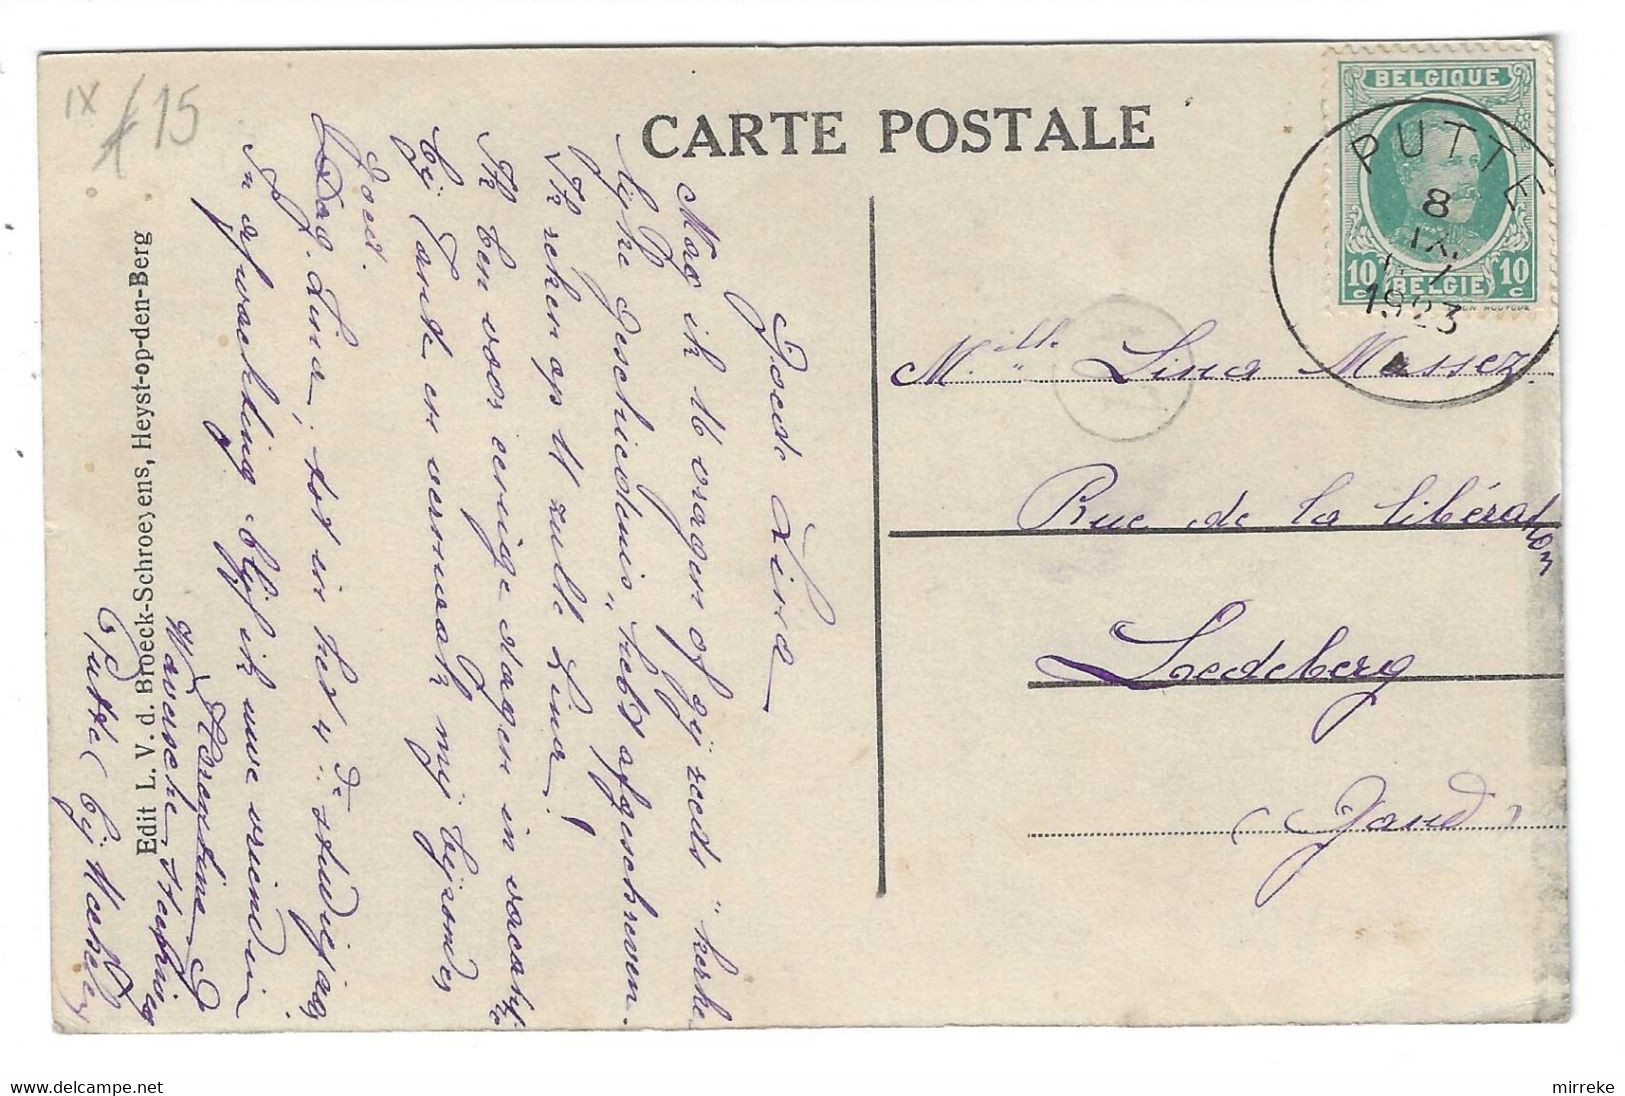 IX £ 15
CARTE POSTALE
BELGIQUE
10 c BELGIE 10 c
PUTTE
8
IX
1923
Edit L. V. d. Broeck-Schroeyens, Heyst-op-den-Berg
Goede Lina
Mag ik U vragen of gij reeds "kerke
lijke geschiedenis" hebt afgeschreven.
Ik reken op U zulle Lina!
Ik ben voor eenige dagen in vacantie
bij Tante en vermaak mij bijzonder
goed.
Dag Lina, tot in het 4de studiejaar
In afwachting blijf ik uwe vriendin
Florentine
Putte (bij Mechelen
Mlle Lina Massez
Rue de la libération
Ledeberg
(Gand)
www.delcampe.net
mirreke